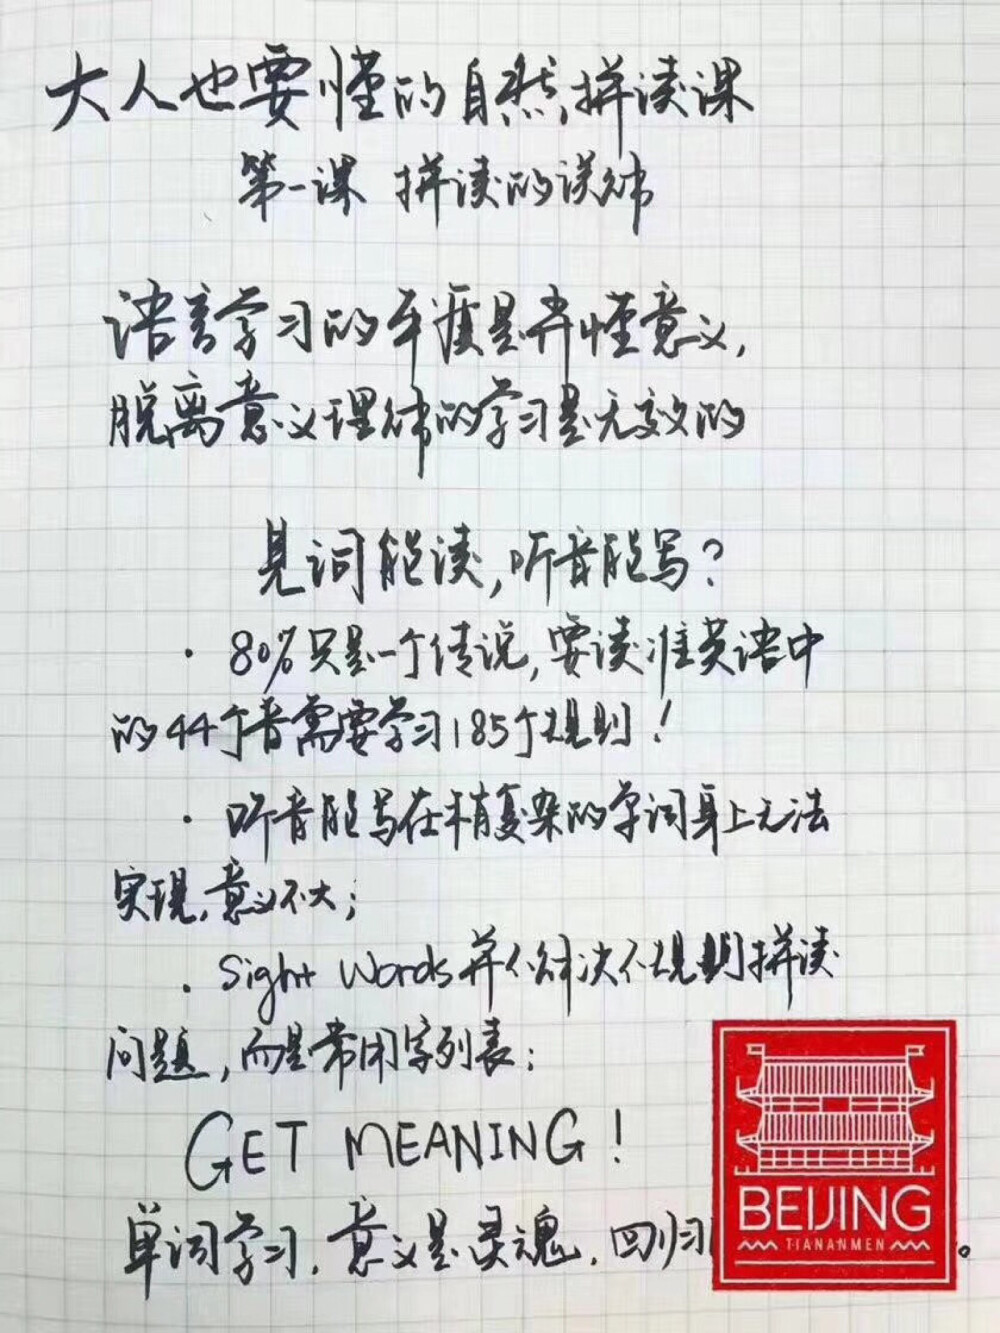 大人也要懂的自然拼读课
第一课 拼读的误解
语言学习的本质是弄懂意义,
脱离意义理解的学习是无效的
见词能读,听音能写?
· 80%只是一个传说,要读准英语中
的44个音需要学习185个规则!
· 听音能写在稍复杂的单词身上无法
实现,意义不大;
· Sight Words并不解决不规则拼读
问题,而是常用字列表;
GET MEANING!
单词学习,意义是灵魂,回归
BEIJING
TIANANMEN